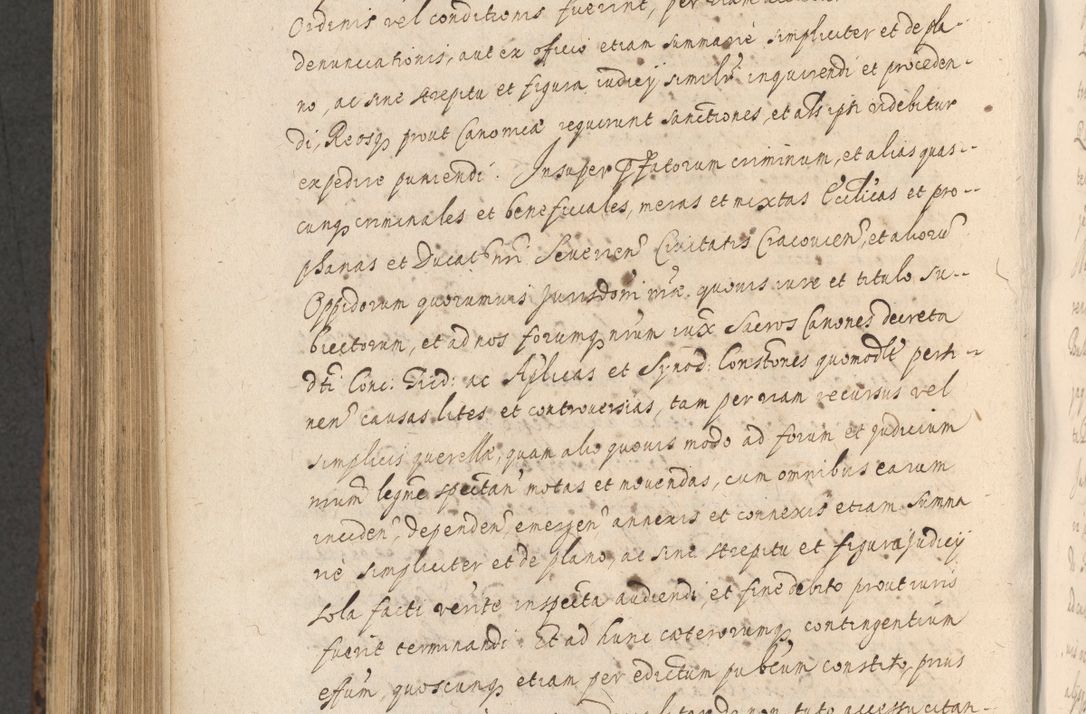 Ordinis vel conditionis fuerint, per viam
denunciationis, aut ex officio etiam summarie simpliciter et de pla-
no, ac sine strepitu et figura iudicij similr inquirendi et proceden-
di, Reosq prout Canonicæ requirunt sanctiones, et als ipsi videbitur
expedire puniendi. Insuper pfatorum criminum, et alias quas-
cunq criminales et beneficiales, meras et mixtas Ecclicas et pro-
phanas et Ducat nri Severien Civitatis Cracovien, et alioru
Oppidorum quorumvis Jurisdoni nræ quovis iure et titulo su-
biectorum, et ad nos forumq nrum iux Sacros Canones decreta
dti Conc: Trid: ac Aplicas et Synod: Constones quomodlt perti-
nen causas lites et controversias, tam per viam recursus vel
simplicis querellæ, quam alio quovis modo ad forum et judicium
nrum legne spectan motas et movendas, cum omnibus earum
inciden, dependen, emergen annexis et connexis etiam summa
rie simpliciter et de plano, ac sine strepitu et figura Judicij
sola facti verite inspecta audiendi, et fine debito prout iuris
fuerit terminandi. Et ad hunc cæterorumq contingentium
effum, quoscunq etiam per edictum publcum constito, prius
non tuto accessu citan-